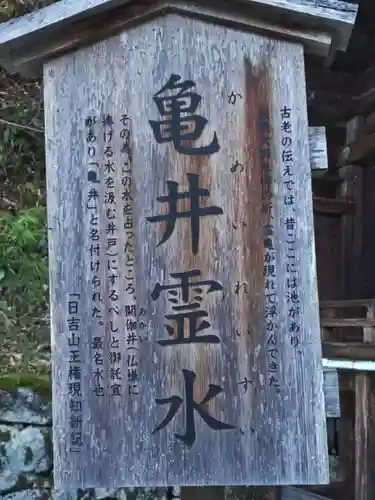 古老の伝えでは、昔ここには池があり、
霊亀が現れて浮かんできた。
かめいれいすい
亀井霊水
その為、この水を占ったところ、閼伽井(仏様に
捧げる水を汲む井戸)にするべしと御託宣
があり「亀井」と名付けられた。最名水也
「日吉山王権現知新記」